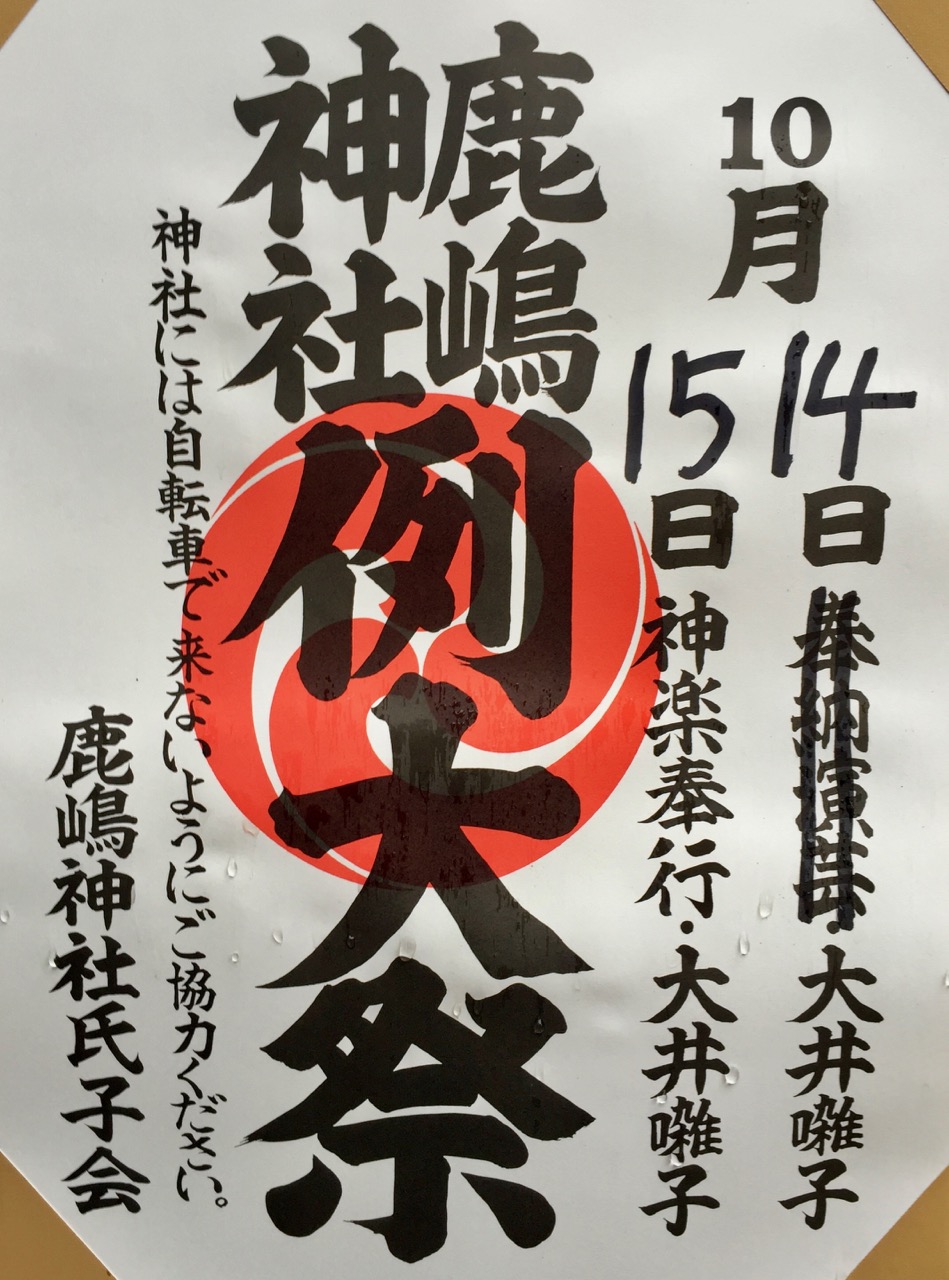 10月
14日 奉納演芸・大井囃子
15日 神楽奉行・大井囃子
鹿嶋
神社
例大祭
神社には自転車で来ないようにご協力ください。
鹿嶋神社氏子会